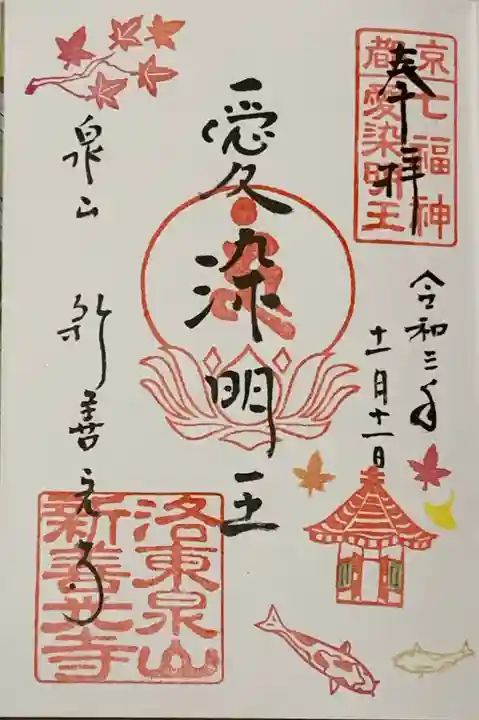 奉拝
京七福神
都愛染明王
令和三年
十一月十一日
愛染明王
泉山 新善光寺
洛東泉山
新善光寺